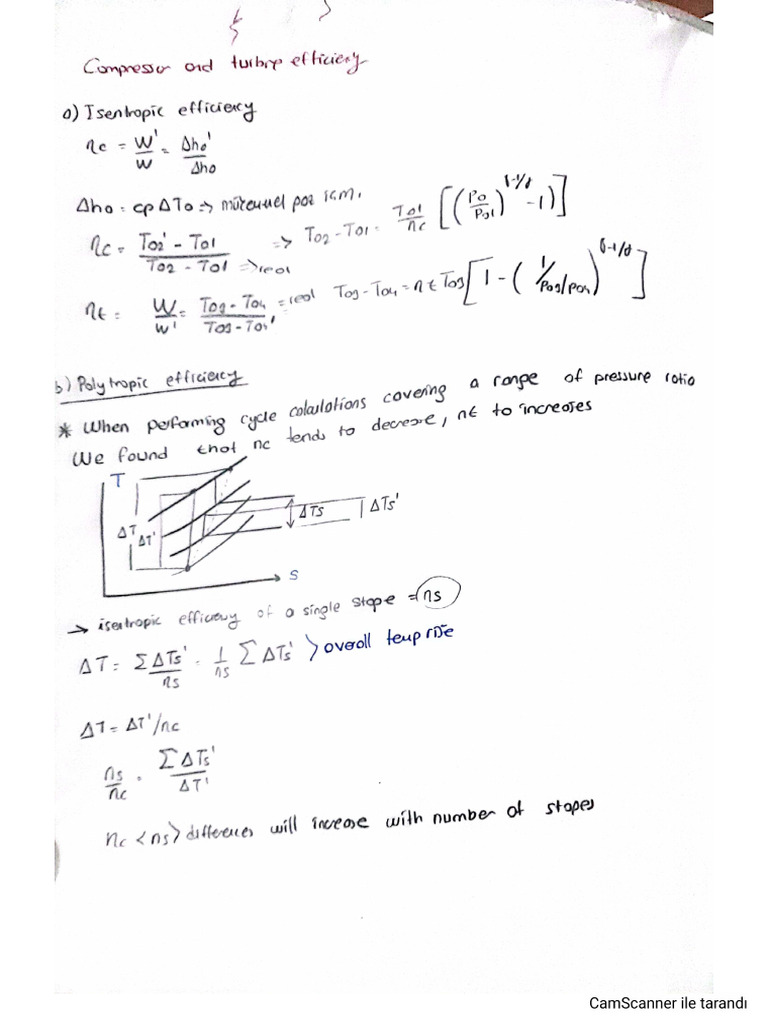 Compressor and turbine efficiency
a) Isentropic efficiency
ηc = W'/W = Δho'/Δho
Δho = cpΔTo => mükemmel gaz için.
ηc = (To2' - To1)/(To2 - To1) => real => To2 - To1 = To1/ηc [(Po/Po1)^(γ-1/γ) - 1)]
ηt = W/W' = (To3 - To4)/(To3 - To4') = real To3 - To4 = ηt To3 [1 - (1/Po3/Po4)^(γ-1/γ)]
b) Polytropic efficiency
* When performing cycle calculations covering a range of pressure ratio
We found that ηc tends to decrease, ηt to increases
T
ΔT ΔT' ΔTs ΔTs'
s
→ isentropic efficiency of a single stage = ηs
ΔT = Σ ΔTs'/ηs = 1/ηs Σ ΔTs' > overall temp rise
ΔT = ΔT'/ηc
ηs/ηc = Σ ΔTs'/ΔT'
ηc < ηs > differences will increase with number of stages
CamScanner ile tarandı